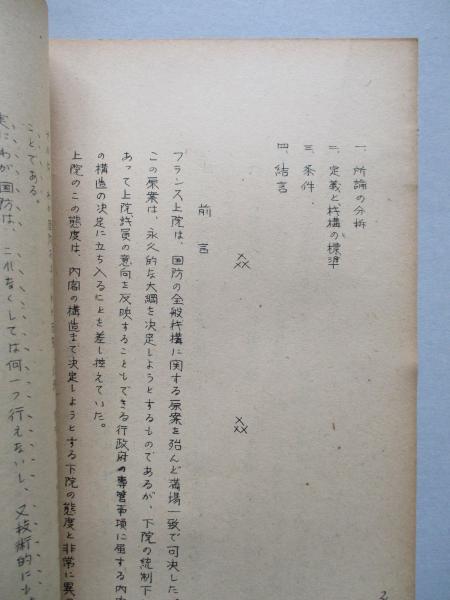 一、所論の分析
二、定義と机構の標準
三、条件
四、結言
前言
フランス上院は、国防の全般机構に関する原案を殆んど満場一致で可決した。
この原案は、永久的な大綱を決定しようとするものであるが、下院の統制下
あって上院議員の意向を反映することもできる行政府の専管事項に属する内
の構造の決定に立ち入ることを差し控えていた。
上院のこの態度は、内閣の構造まで決定しようとする下院の態度と非常に異
2
ことである。
にわが国防は、これなくしては何一つ行えないし、又技術的に